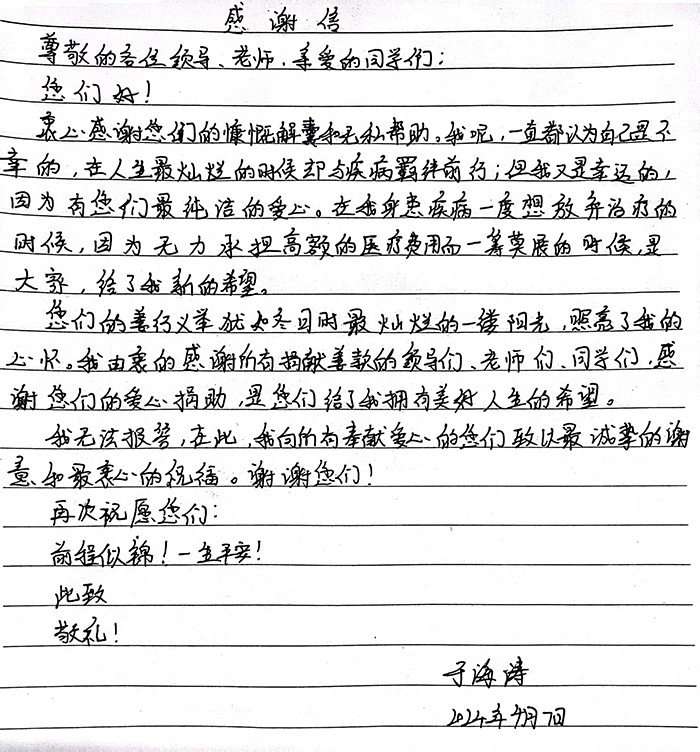 感谢信
尊敬的各位领导、老师、亲爱的同学们：
您们好！
衷心感谢您们的慷慨解囊和无私帮助。我呢，一直都认为自己是不
幸的，在人生最灿烂的时候却与疾病羁绊前行；但我又是幸运的，
因为有您们最纯洁的爱心。在我身患疾病一度想放弃治疗的
时候，因为无力承担高额的医疗费用而一筹莫展的时候，是
大家，给了我新的希望。
您们的善行义举犹如冬日时最灿烂的一缕阳光，照亮了我的
心怀。我由衷的感谢所有捐献善款的领导们、老师们、同学们，感
谢您们的爱心捐助，是您们给了我拥有美好人生的希望。
我无法报答，在此，我向所有奉献爱心的您们致以最诚挚的谢
意和最衷心的祝福。谢谢您们！
再次祝愿您们：
前程似锦！一生平安！
此致
敬礼！
于海涛
2024年月7日